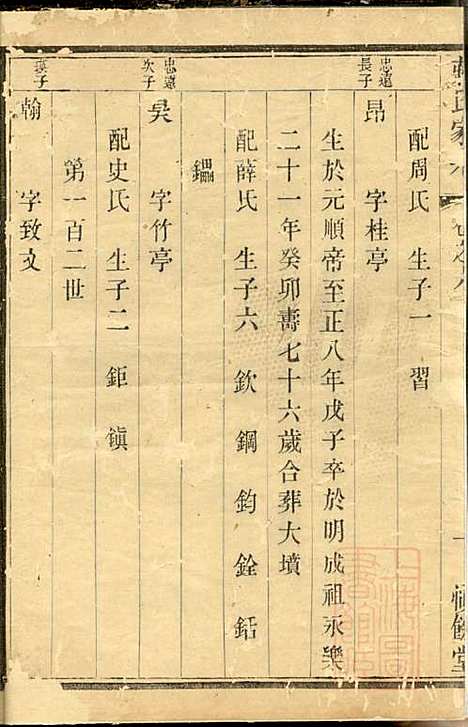 配周氏 生子一 習
忠遠長子
昂 字桂亭
生於元順帝至正八年戊子卒於明成祖永樂
二十一年癸卯壽七十六歲合葬大墳
配薛氏 生子六 欽 鋼 鈞 銓 銛
鑘
忠遠次子
昊 字竹亭
配史氏 生子二 鉅 鎮
第一百二世
長子
翰 字致文